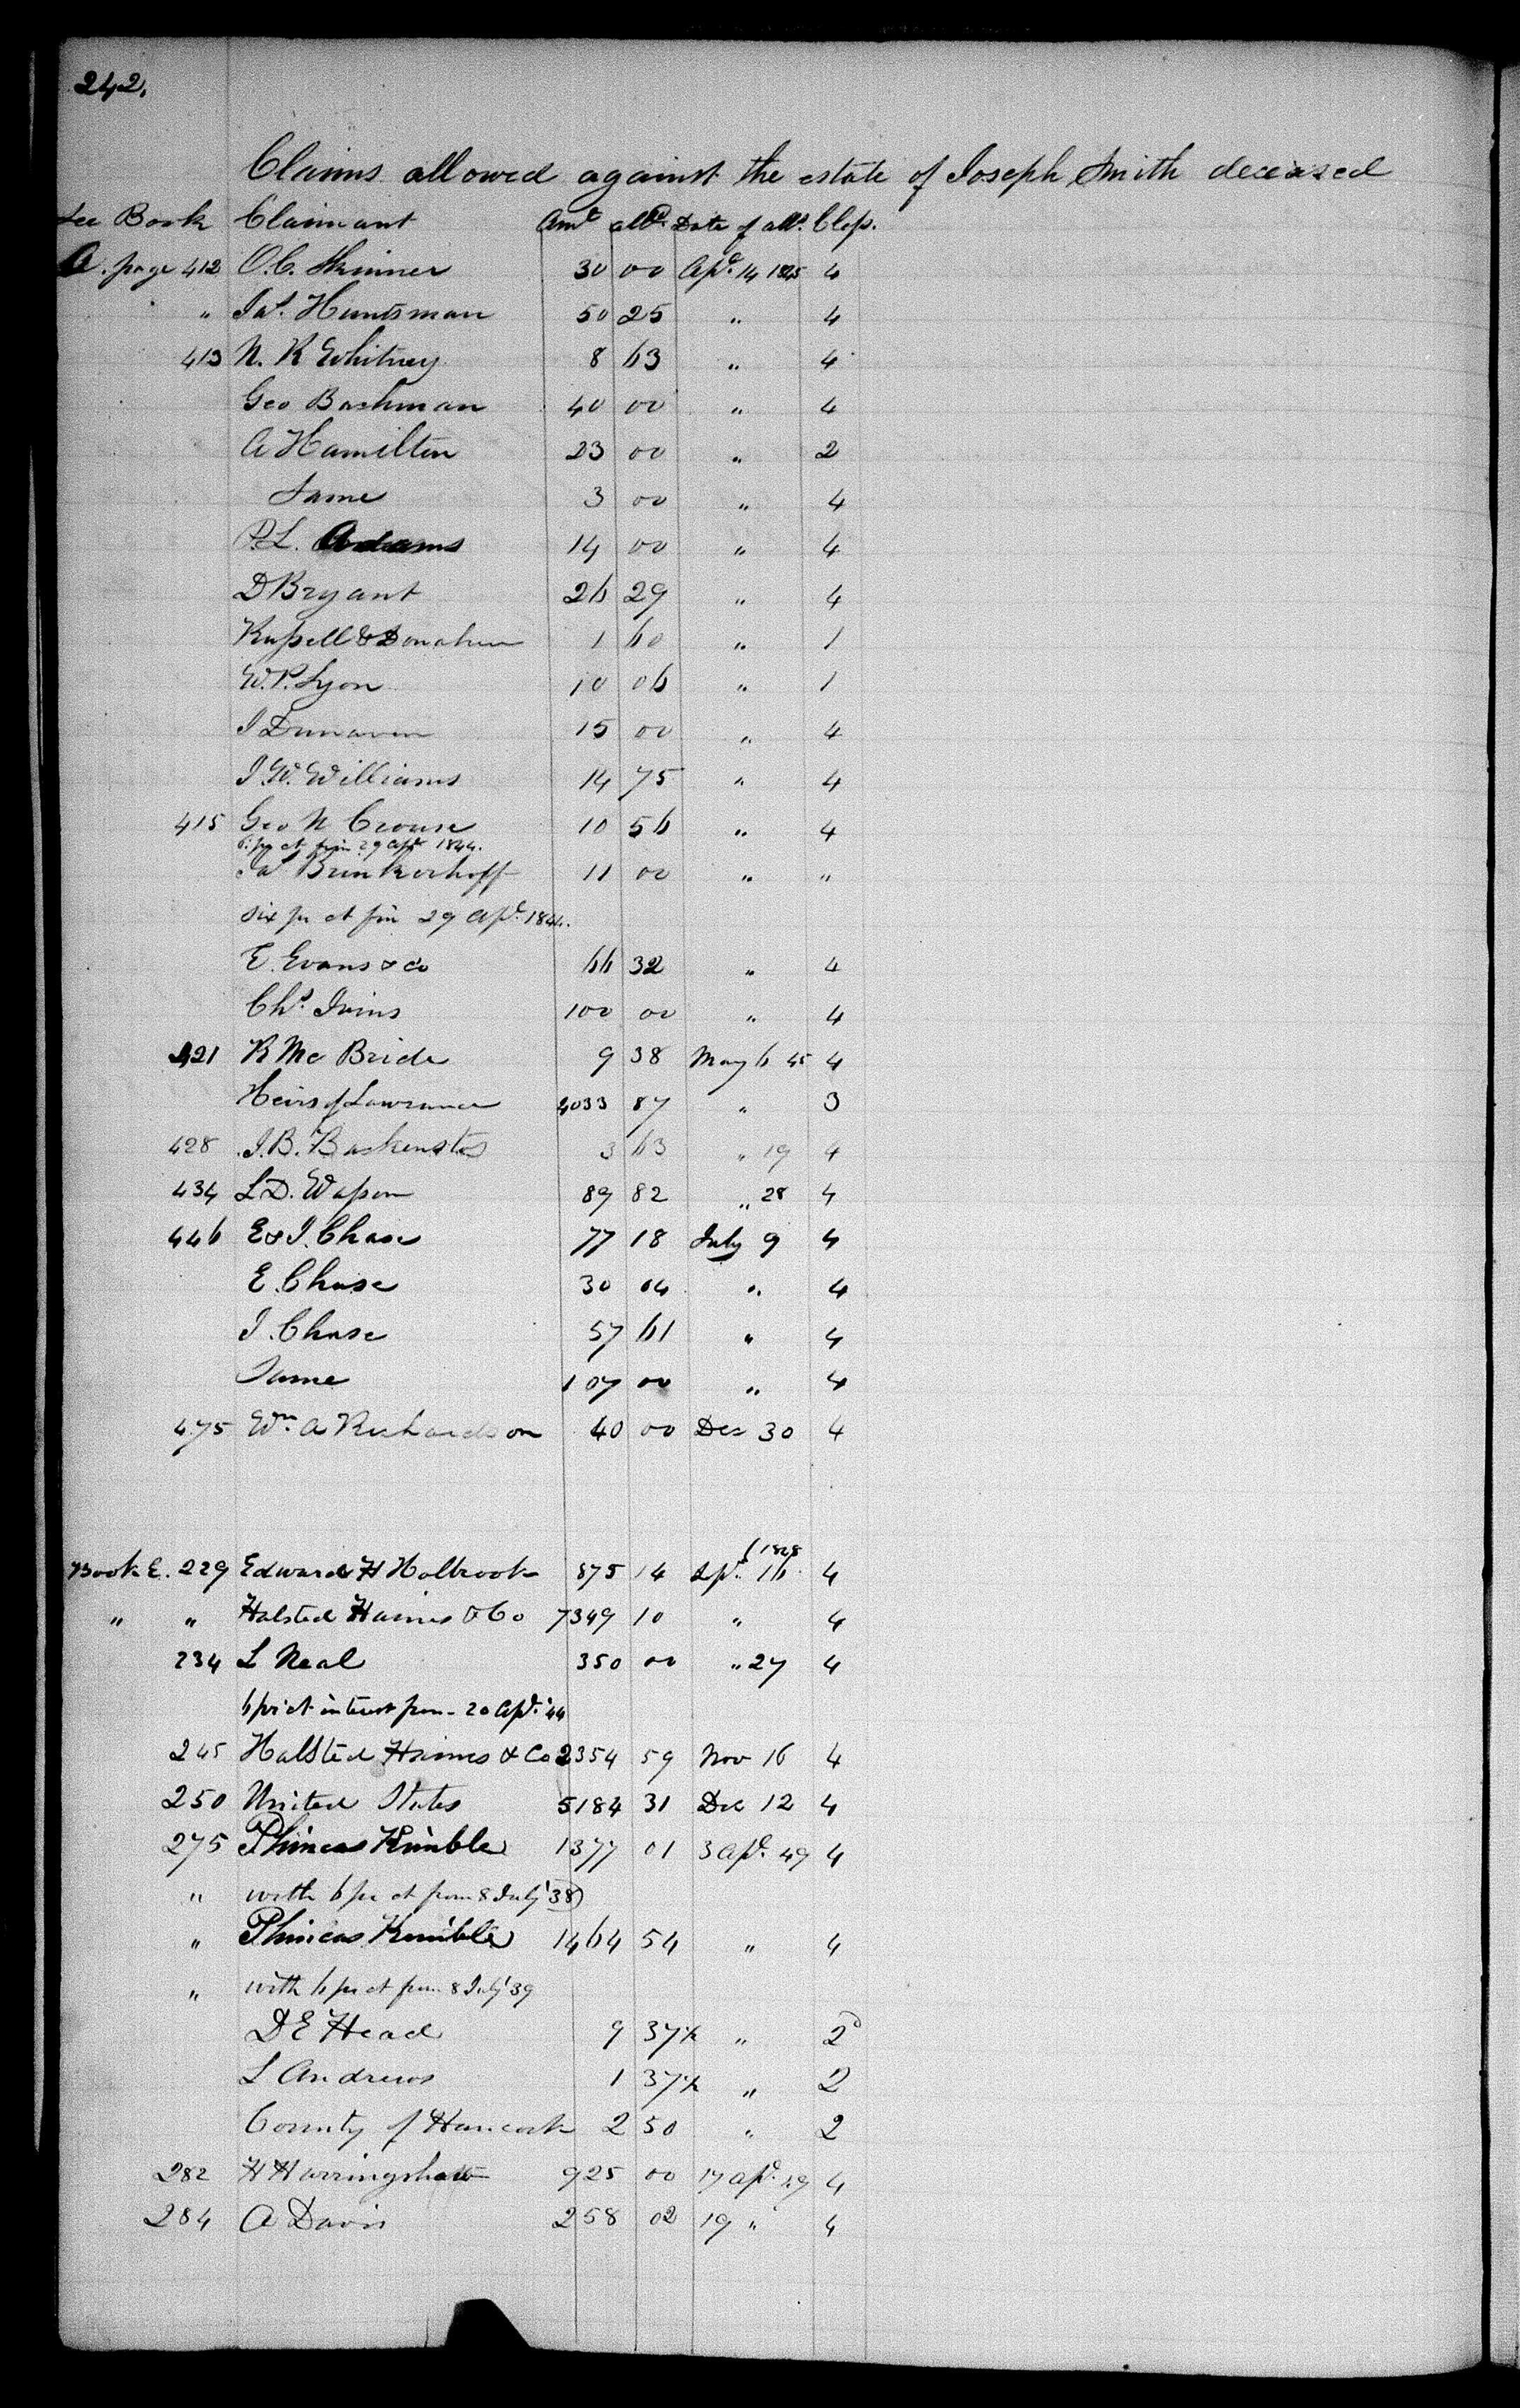 242.
Claims allowed against the estate of Joseph Smith deceased
See Book Claimant Amt alld. Date of all. Class.
A. page 412 O. C. Skinner 30 00 Apl. 14 1845 4
" Jas. Huntsman 50 25 " 4
413 N. K Whitney 8 63 " 4
Geo Bachman 40 00 " 4
A Hamilton 23 00 " 2
Same 3 00 " 4
P. L. Adams 14 00 " 4
D Bryant 26 29 " 4
Russell & Donahue 1 60 " 1
W. P. Lyon 10 06 " 1
J Dunaven 15 00 " 4
J. W. Williams 14 75 " 4
415 Geo W Crouse 10 56 " 4
6. pr ct from 29 Apl 1844.
Jas Brinkerhoff 11 00 " "
six pr ct fm 29 Apl. 1844.
E. Evans & Co 66 32 " 4
Chs. Ivins 100 00 " 4
421 R Mc Bride 9 38 May 6 45 4
Heirs of Lawrence 4033 87 " 3
428 J. B. Backenstos 3 63 " 19 4
434 L D. Wasson 89 82 " 28 4
446 E & I. Chase 77 18 July 9 4
E. Chase 30 04 " 4
I. Chase 57 61 " 4
Same 107 00 " 4
475 Wm. A Richardson 40 00 Dec 30 4
Book E. 229 Edward H Holbrook 875 14 16 4
" " Halsted Haines & Co 7349 10 " 4
234 L Neal 350 00 " 27 4
6 pr ct interest from 20 Apl. '44
245 Halsted Haines & Co 2354 59 Nov 16 4
250 United States 5184 31 Dec 12 4
275 Phineas Kimble 1377 01 3 Apl. 49 4
" with 6 pr ct from 8 July '38)
" Phineas Kimble 1464 54 " 4
" with 6 pr ct from 8 July '39
D E Head 9 37½ " 2
L Andrews 1 37½ " 2
County of Hancock 2 50 " 2
282 H Harringshaw 925 00 17 Apl. 49 4
284 A Davis 258 02 19 " 4